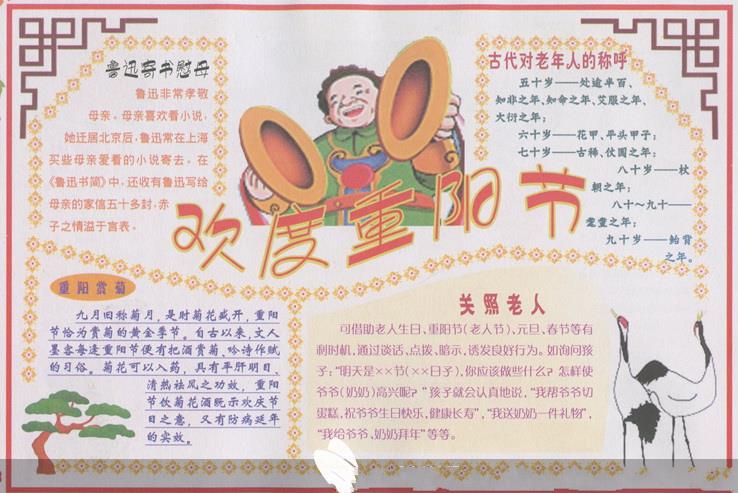 鲁迅寄书慰母
鲁迅非常孝敬
母亲。母亲喜欢看小说，
她迁居北京后，鲁迅常在上海
买些母亲爱看的小说寄去。在
《鲁迅书简》中，还收有鲁迅写给
母亲的家信五十多封，赤
子之情溢于言表。
古代对老年人的称呼
五十岁——处逾半百、
知非之年、知命之年、艾服之年、
大衍之年；
六十岁——花甲、平头甲子；
七十岁——古稀、伏国之年；
八十岁——杖
朝之年；
八十～九十——
耄耋之年；
九十岁——鲐背
之年。
欢度重阳节
重阳赏菊
九月旧称菊月，是时菊花盛开，重阳
节恰为赏菊的黄金季节。自古以来，文人
墨客每逢重阳节便有把酒赏菊、吟诗作赋
的习俗。菊花可以入药，具有平肝明目、
清热祛风之功效，重阳
节饮菊花酒既示欢庆节
日之意，又有防病延年
的实效。
关照老人
可借助老人生日、重阳节(老人节)、元旦、春节等有
利时机，通过谈话、点拨、暗示，诱发良好行为。如询问孩
子：“明天是××节(××日子)，你应该做些什么？怎样使
爷爷(奶奶)高兴呢？”孩子就会认真地说，“我帮爷爷切
蛋糕，祝爷爷生日快乐，健康长寿”，“我送奶奶一件礼物”，
“我给爷爷、奶奶拜年”等等。